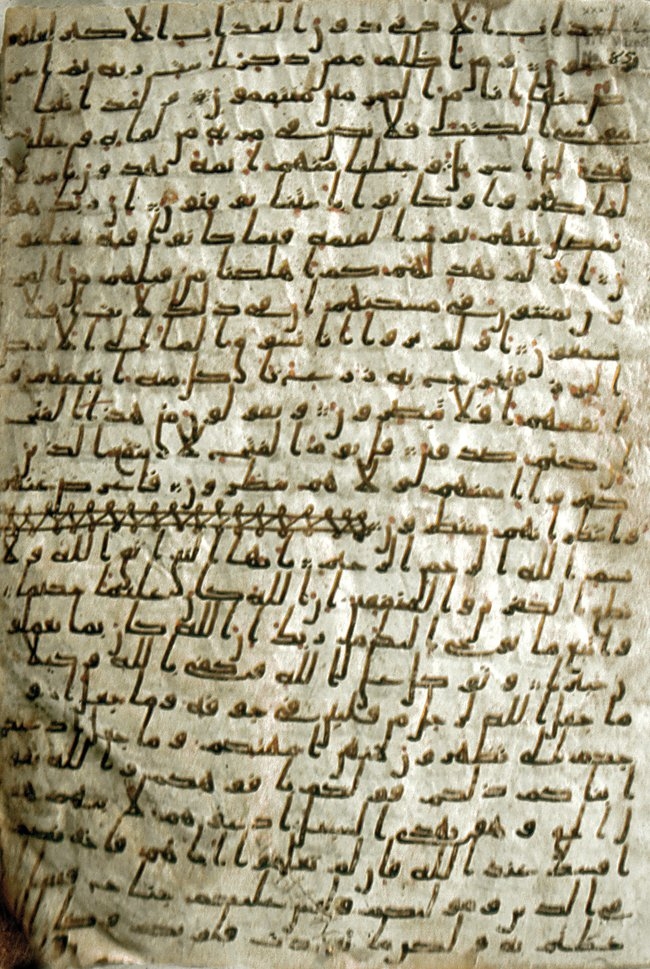 العذاب الادنى دون العذاب الاكبر لعلهم
يرجعون ومن اظلم ممن ذكر بايت ربه ثم اعر
ض عنها انا من المجرمين منتقمون ولقد اتينا
موسى الكتب فلا تكن في مرية من لقايه وجعلنه
هدى لبني اسريل وجعلنا منهم ايمة يهدون بامرنا
لما صبروا وكانوا بايتنا يوقنون ان ربك هو
يفصل بينهم يوم القيمة فيما كانوا فيه يختلفو
ن او لم يهد لهم كم اهلكنا من قبلهم من القر
ون يمشون في مسكنهم ان في ذلك لايت افلا
يسمعون او لم يروا انا نسوق الما الى الارض
الجرز فنخرج به زرعا تاكل منه انعمهم و
انفسهم افلا يبصرون ويقولون متى هذا الفتح
ان كنتم صدقين قل يوم الفتح لا ينفع الذين
كفروا ايمنهم ولا هم ينظرون فاعرض عنهم
وانتظر انهم منتظرون
بسم الله الرحمن الرحيم يايها النبي اتق الله ولا
تطع الكفرين والمنفقين ان الله كان عليما حكيما
واتبع ما يوحى اليك من ربك ان الله كان بما تعملو
ن خبيرا وتوكل على الله وكفى بالله وكيلا
ما جعل الله لرجل من قلبين في جوفه وما جعل ازو
جكم الى تظهرون منهن امهتكم وما جعل ادعيا
كم ابناكم ذلكم قولكم بافوهكم والله يقو
ل الحق وهو يهدي السبيل ادعوهم لابايهم هو
اقسط عند الله فان لم تعلموا اباهم فاخونكم
في الدين وموليكم وليس عليكم جناح فيما
اخطاتم به ولكن ما تعمدت قلوبكم وكان